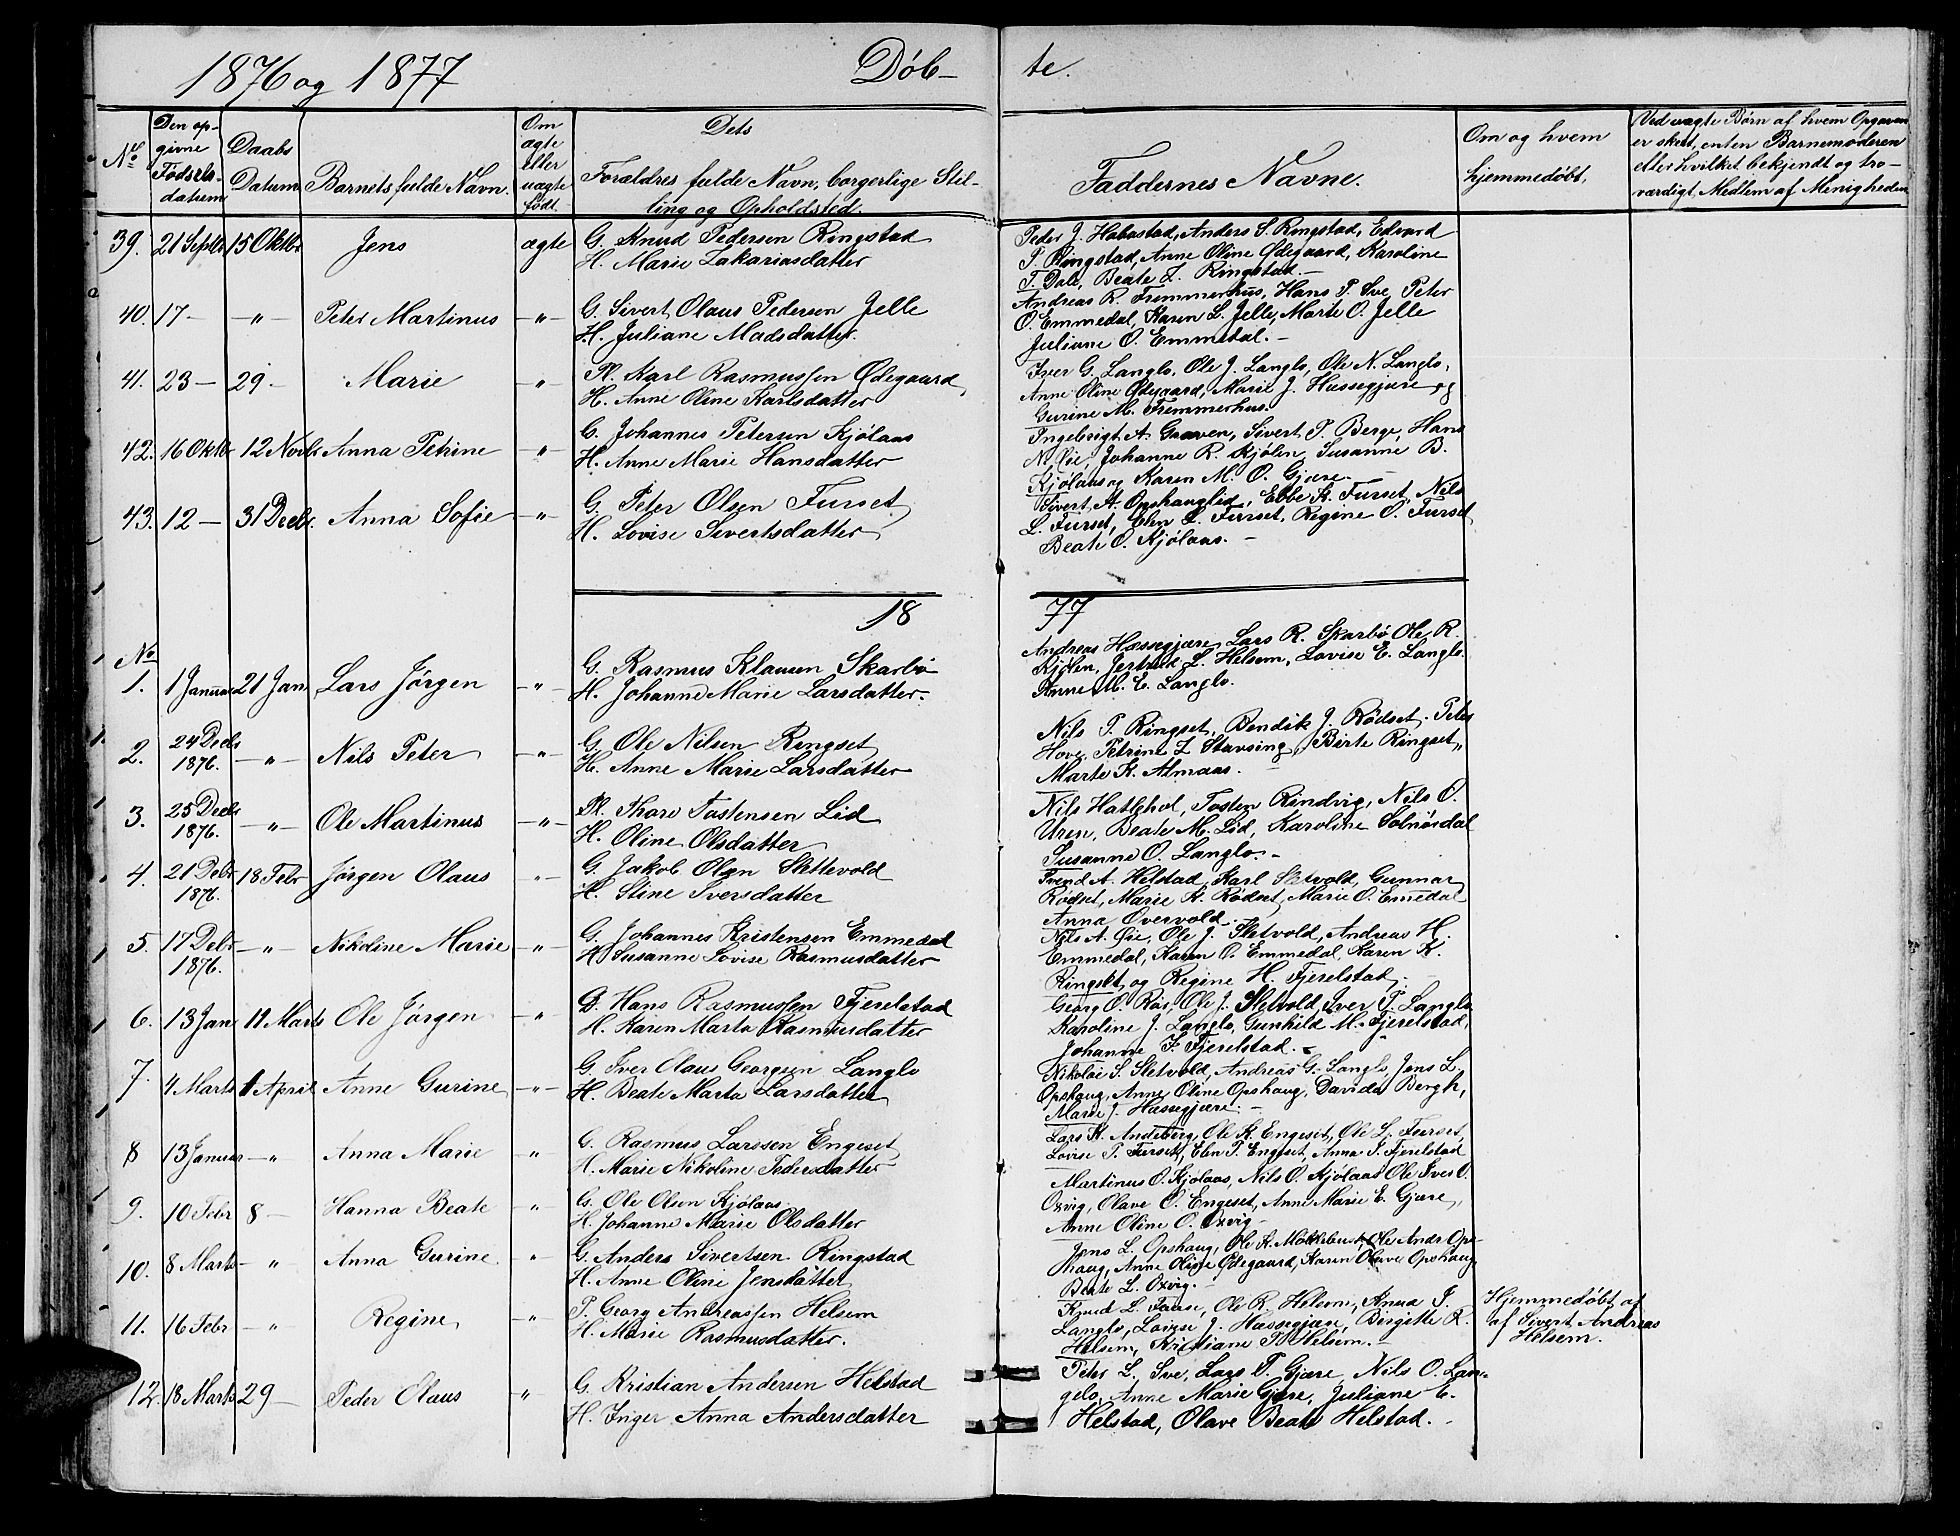 1876 og 1877
Døb-
te.
No
Den op-
givne
Fødsels-
datum
Daabs
Datum
Barnets fulde Navn.
Om
ægte
eller
uægte
født.
Dets
Forældres fulde Navn, borgerlige Stil-
ling og Opholdsted.
Faddernes Navne.
Om og hvem
hjemmedøbt.
Ved uægte Børn af hvem Opgaven
er skeet, enten Barnemoderen
eller hvilket bekjendt og tro-
værdigt Medlem af Menigheden
39. 21 Septbr 15 Oktbr Jens ægte G. Knud Pedersen Ringstad
H. Marie Zakariasdatter
Peder J. Habostad, Anders S. Ringstad, Edvard
P. Ringstad, Anne Oline Ødegaard, Karoline
T. Dale, Beate Z. Ringstad.–
40. 17– –"– Peter Martinus –"– G. Sivert Olaus Pedersen Jelle
H. Juliane Madsdatter.
Andreas R. Fremmerhus, Hans P. Sve, Peter
O. Emmedal, Karen L. Jelle, Marte O. Jelle
Juliane O. Emmedal.–
41. 23– 29.– Marie " Pl. Karl Rasmussen Ødegaard,
H. Anne Oline Karlsdatter
Iver G. Langlo, Ole J. Langlo, Ole N. Langlo,
Anne Oline Ødegaard, Marie J. Hassegjære og
Gurine M. Fremmerhus.
42. 16 Oktbr 12 Novbr Anna Petrine –"– G. Johannes Petersen Kjølaas
H. Anne Marie Hansdatter
Ingebrigt A. Graven, Sivert P. Berge, Hans
N. Øie, Johanne R. Kjølen, Susanne B.
Kjølaas og Karen M. O. Gjære.
43. 12– 31 Decbr. Anna Sofie –"– G. Peter Olsen Furset
H. Lovise Sivertsdatter
Sivert A. Opshauglid, Ebbe K. Furset, Nils
L. Furset, Elen L. Furset, Regine O. Furset
Beate O. Kjølaas.–
18 77
No
1. 1 Januar 21 Jan Lars Jørgen –"– G. Rasmus Klausen Skarbø
H. Johanne Marie Larsdatter.
Andreas Hassegjære, Lars R. Skarbø, Ole R.
Kjølen, Jertrud L. Helsem, Lovise E. Langlo.
Anne M. E. Langlo.
2. 24 Decbr
1876. –"– Nils Peter –"– G. Ole Nilsen Ringset
H. Anne Marie Larsdatter
Nils P. Ringset, Bendik J. Rødset, Peter
Hove, Petrine L. Stavsing, Birte Ringset,
Marte K. Almaas.
3. 25 Decbr
1876. –"– Ole Martinus –"– Pl. Thore Tostensen Lid
H. Oline Olsdatter
Nils Hatlehol, Tosten Rindvig, Nils O.
Uren, Beate M. Lid, Karoline Solnørdal
Susanne O. Langlo.–
4. 21 Debr
1876. 18 Febr Jørgen Olaus –"– G. Jakob Olsen Slettevold
H. Stine Iversdatter
Trend A. Helstad, Karl Sletvold, Gunnar
Rødset, Marie K. Rødset, Marie O. Emedal
Anna Overvold.
5. 17 Debr
1876. –"– Nikoline Marie –"– G. Johannes Kristensen Emmedal
H. Susanne Lovise Rasmusdatter
Nils A. Øie, Ole J. Sletvold, Andreas H.
Emmedal, Karen O. Emmedal, Karen K.
Ringset, og Regine H. Fjerelstad.
6. 13 Jan 11 Marts Ole Jørgen –"– G. Hans Rasmussen Fjerelstad
H. Karen Marta Rasmusdatter
Georg O. Røs, Ole J. Sletvold, Iver P. Langlo
Karoline J. Langlo, Gunhild M. Fjerelstad,
Johanne F. Fjerelstad.–
7. 4 Marts 1 April Anne Gurine –"– G. Iver Olaus Georgsen Langlo
H. Beate Marta Larsdatter
Nikolai S. Sletvold, Andreas G. Langlo, Jens L.
Opshaug, Anne Oline Opshaug, Davida Bergh,
Marie J. Hassegjære.–
8 13 Januar –"– Anna Marie –"– G. Rasmus Larssen Engeset
H. Marie Nikoline Pedersdatter
Lars K. Andeberg, Ole K. Engeset, Ole L. Furset,
Lovise P. Furset, Elen P. Engset, Anna J. Fjerelstad
9. 10 Febr 8– Hanna Beate –"– G. Ole Olsen Kjølaas
H. Johanne Marie Olsdatter
Martinus O. Kjølaas, Nils O. Kjølaas Ole Iver O.
Oxvig, Olave O. Engeset, Anne Marie E. Gjære,
Anne Oline O. Oxvig–
10. 8 Marts– " Anna Gurine " G. Anders Sivertsen Ringstad
H. Anne Oline Jensdatter
Jens L. Opshaug, Ole K. Mokkebust, Ole Andr Ops-
haug, Anne Oline Ødegaard, Karen Olave Opshaug
Beate L. Oxvig.–
11. 16 Febr –"– Regine –"– P. Georg Andreassen Helsem
H. Marie Rasmusdatter.
Knud L. Faase, Ole R. Helsem, Anna J.
Langlo, Lovise J. Hassegjære, Birgitte R.
Helsem, Kristiane P. Helsem.
Hjemmedøbt af
af Sivert Andreas
Helsem.
12. 18 Marts 29– Peder Olaus " G. Kristian Andersen Helstad
H. Inger Anna Andersdatter
Peter L. Sve, Lars P. Gjære, Nils O. Lan-
gelo, Anne Marie Gjære, Juliane E.
Helstad, Olave Beate Helstad.–